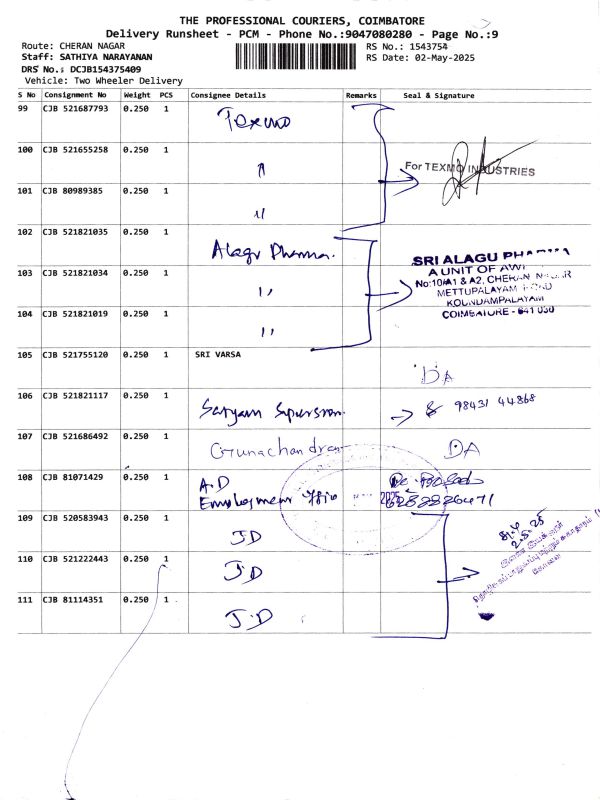 THE PROFESSIONAL COURIERS, COIMBATORE
Delivery Runsheet - PCM - Phone No.:9047080280 - Page No.:9
Route: CHERAN NAGAR RS No.: 1543754
Staff: SATHIYA NARAYANAN RS Date: 02-May-2025
DRS No.: DCJB154375409
Vehicle: Two Wheeler Delivery
S No Consignment No Weight PCS Consignee Details Remarks Seal & Signature
99 CJB 521687793 0.250 1 Texmo
100 CJB 521655258 0.250 1 "
For TEXMO INDUSTRIES
101 CJB 80989385 0.250 1 "
102 CJB 521821035 0.250 1 Alagu Pharma.
SRI ALAGU
A UNIT OF
103 CJB 521821034 0.250 1 "
No:10/A1 & A2, CHERAN NAGAR
METTUPALAYAM ROAD
KOUNDAMPALAYAM
104 CJB 521821019 0.250 1 "
COIMBATORE - 641 030
105 CJB 521755120 0.250 1 SRI VARSA
DA
106 CJB 521821117 0.250 1 Satyam 98431 44868
107 CJB 521686492 0.250 1 Gunachandran DA
108 CJB 81071429 0.250 1 A.D
Employment Office 2025 6282826471
109 CJB 520583943 0.250 1 J.D
2.5.25
110 CJB 521222443 0.250 1 J.D
111 CJB 81114351 0.250 1 J.D